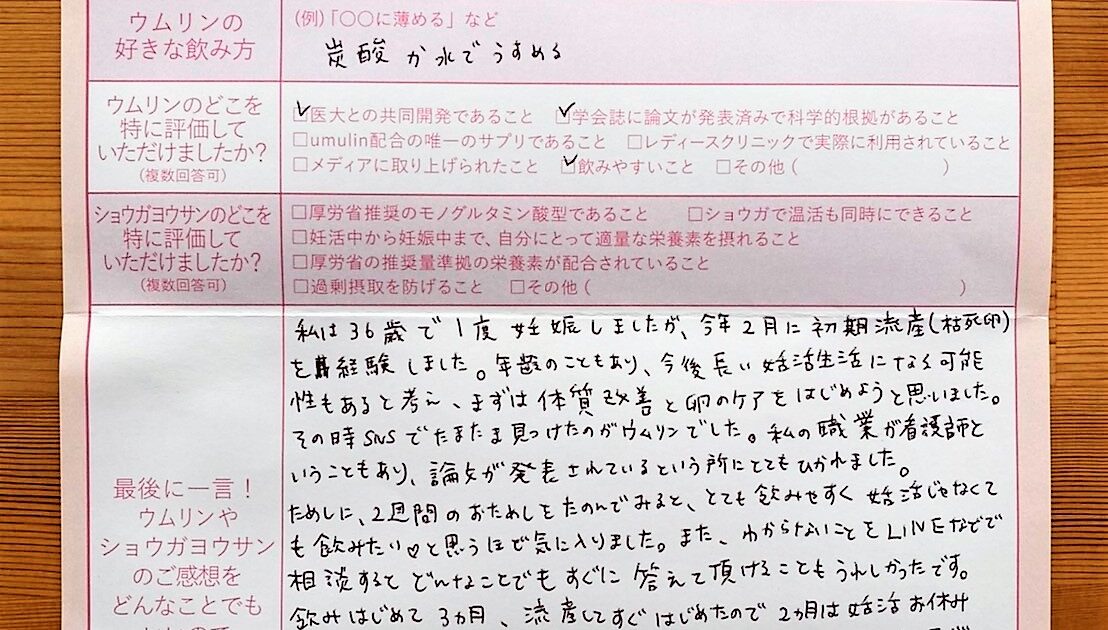 ウムリンの
好きな飲み方
(例)「〇〇に薄める」など
炭酸 か 水で うすめる
ウムリンのどこを
特に評価して
いただけましたか?
(複数回答可)
☑医大との共同開発であること ☑学会誌に論文が発表済みで科学的根拠があること
□umulin配合の唯一のサプリであること □レディースクリニックで実際に利用されていること
□メディアに取り上げられたこと ☑飲みやすいこと □その他 ( )
ショウガヨウサンのどこを
特に評価して
いただけましたか?
(複数回答可)
□厚労省推奨のモノグルタミン酸型であること □ショウガで温活も同時にできること
□妊活中から妊娠中まで、自分にとって適量な栄養素を摂れること
□厚労省の推奨量準拠の栄養素が配合されていること
□過剰摂取を防げること □その他 ( )
最後に一言!
ウムリンや
ショウガヨウサン
のご感想を
どんなことでも
私は36歳で1度妊娠しましたが、今年2月に初期流産(枯死卵)
を経験しました。年齢のこともあり、今後長い妊活生活になる可能
性もあると考え、まずは体質改善と卵のケアをはじめようと思いました。
その時SNSでたまたま見つけたのがウムリンでした。私の職業が看護師と
いうこともあり、論文が発表されているという所にとてもひかれました。
ためしに、2週間のおためしをたのんでみると、とても飲みやすく妊活じゃなくて
も飲みたい♡と思うほど気に入りました。また、わからないことをLINEなどで
相談するとどんなことでもすぐに答えて頂けることもうれしかったです。
飲みはじめて3ヵ月、流産してすぐはじめたので2ヵ月は妊活お休み